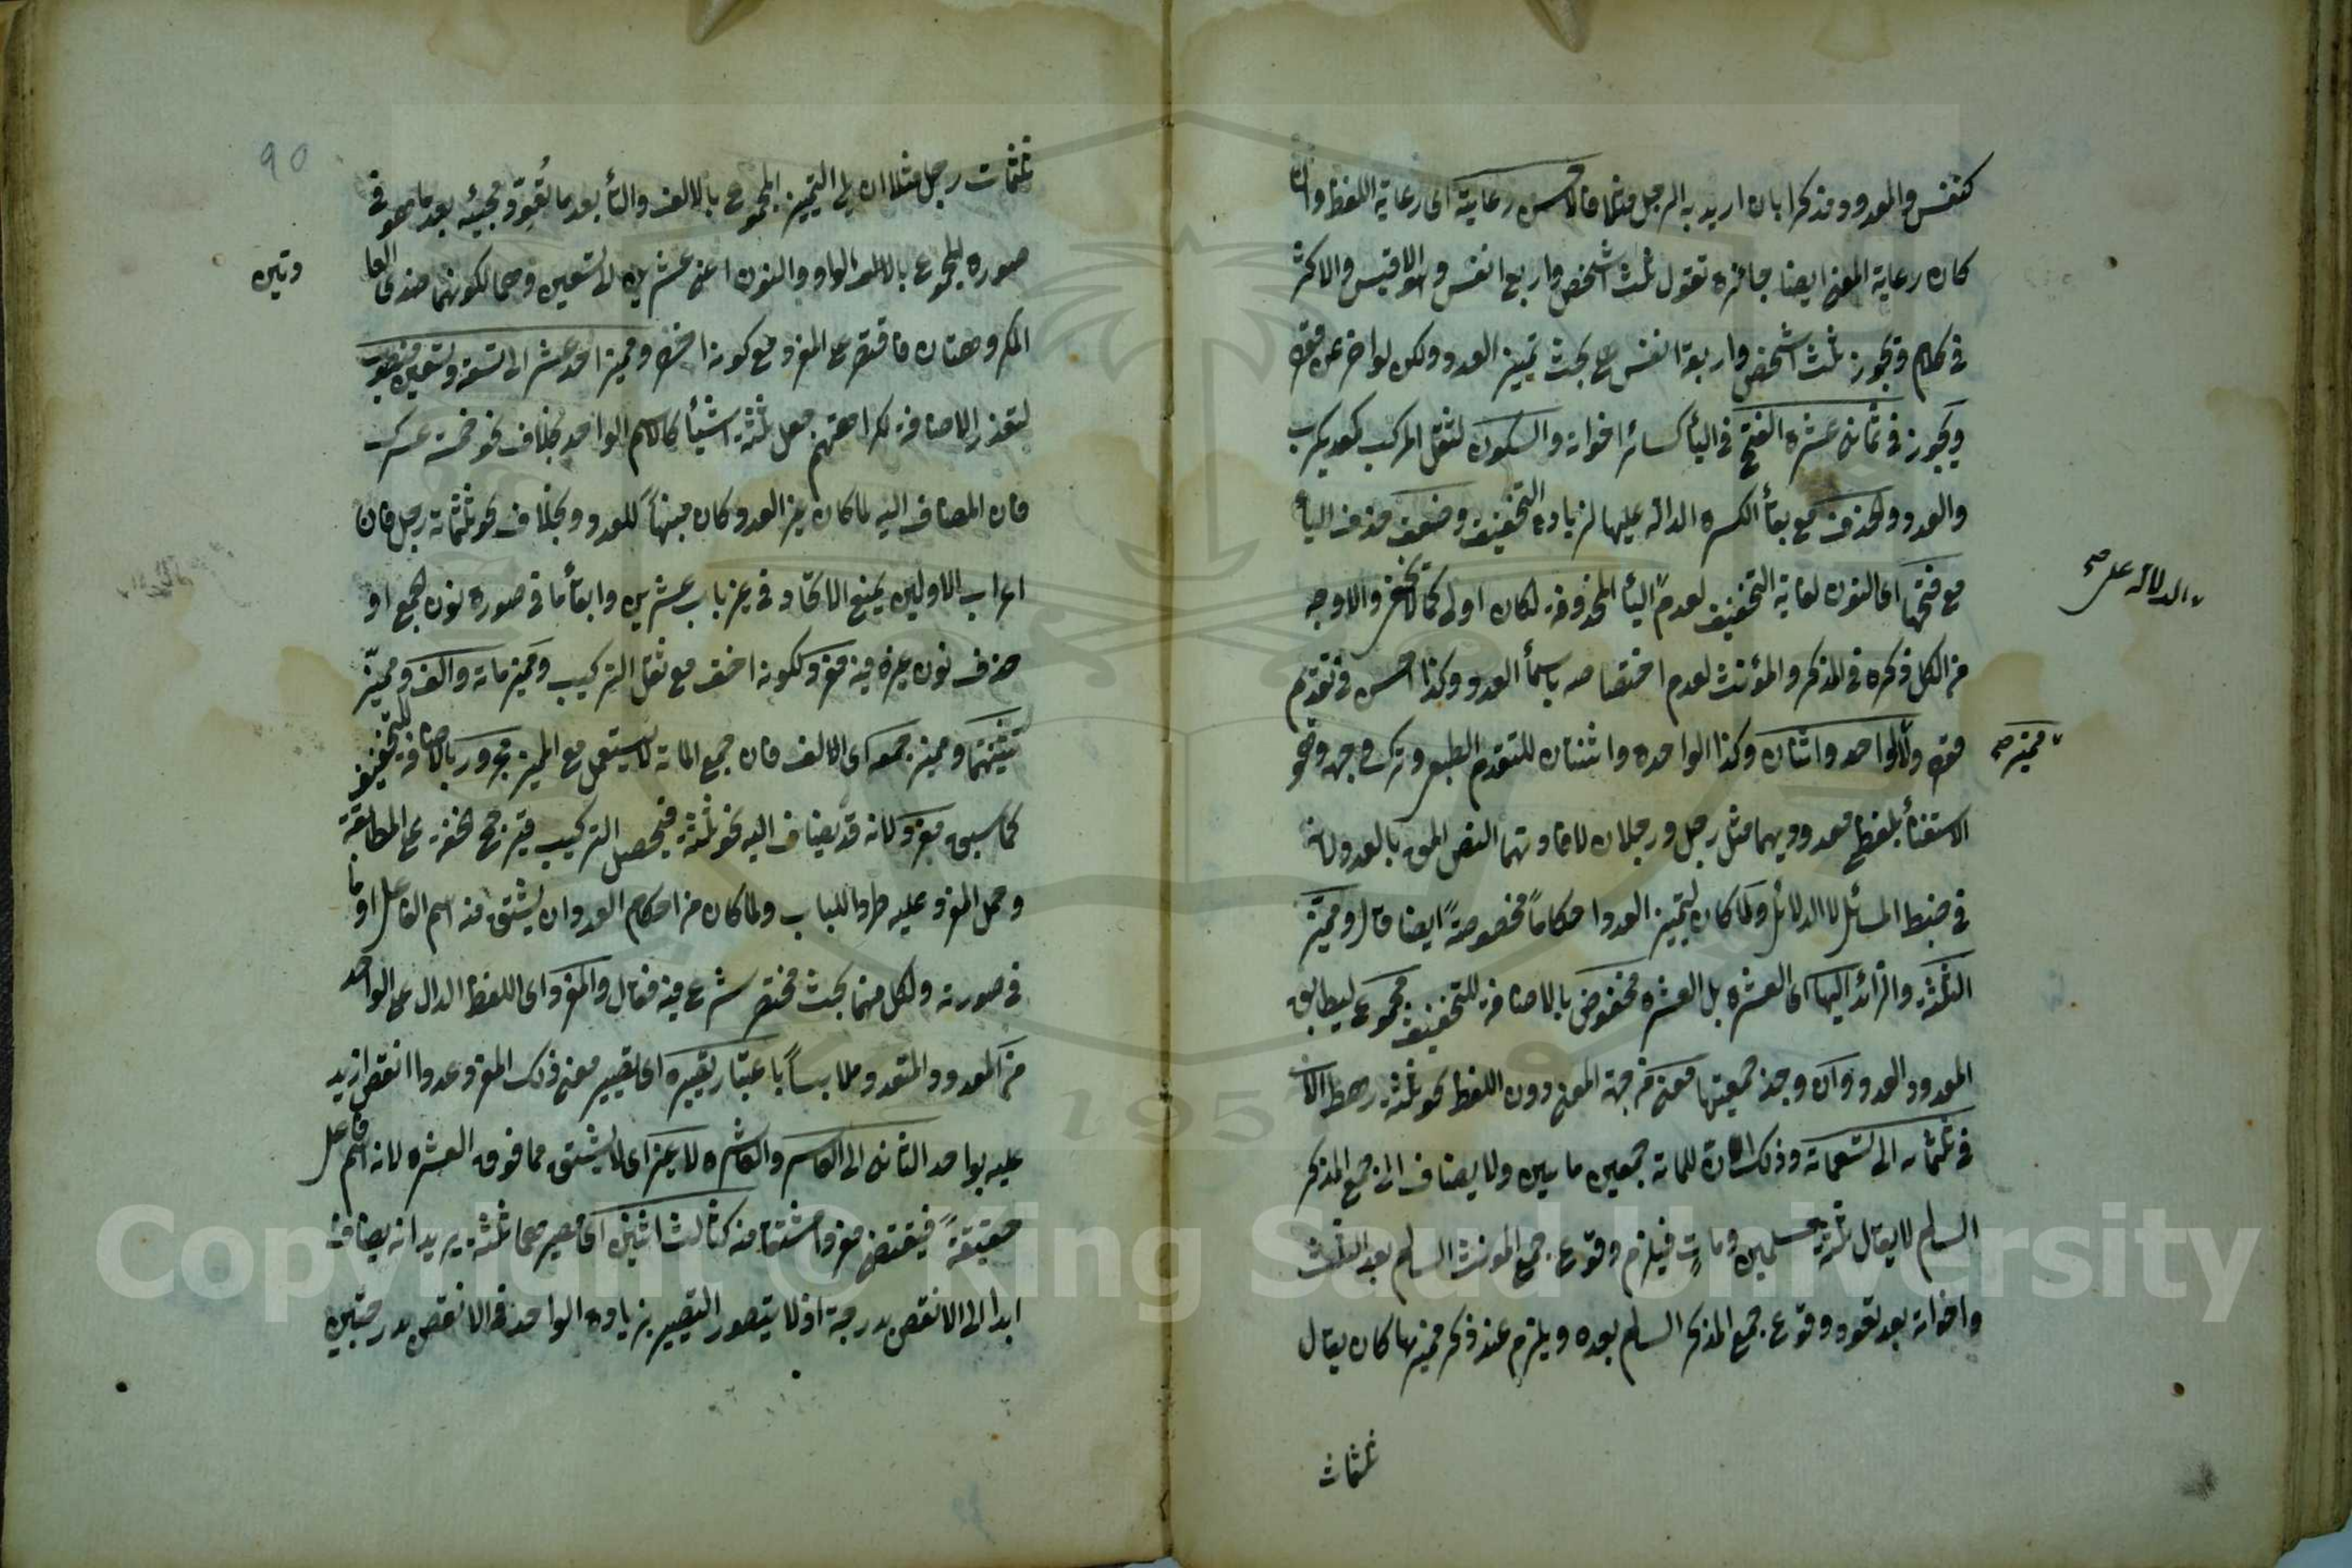 كنفس والمعدود مذكرا بان اريد به الرجل مثلا فالاحسن رعايته اى رعاية اللفظ وان
كان رعاية المعنى ايضا جائزة تقول ثلث اشخص واربع انفس وهو الاقيس والاكثر
فى كلام ويجوز ثلثة اشخص واربعة انفس بحث تمييز العدد ولكن لو اخر عن قوله
ويجوز فى ثمانى عشرة الفتح فى الياء كسائر اخواته والسكون لثقل المركب كمعديكرب
والعدد والحذف مع بقاء الكسرة الدالة عليها لزيادة التخفيف وضعف حذف الياء
مع فتحها اى النون لغاية التخفيف لعدم الياء المحذوفة لكان اولى كما لا يخفى والاوجه
الدلالة على صح
من الكل ذكره فى المذكر والمؤنث لعدم اختصاصه باسماء العدد وكذا احسن فى تقديم
قوله ولا لواحد واثنان وكذا الواحدة واثنتان للتقدم الطبعى وترك وجهه وهو
مميز صح
الاستغناء بلفظ معدوديهما مثل رجل ورجلان لافادتهما النص المق بالعدد لانه
فى ضبط المسائل لا الدلائل ولما كان لتمييز العدد احكاما مخصوصة ايضا قال ومميز
الثلثة والزائد اليها اى العشرة بل العشرة مخفوض بالاضافة للتخفيف مجموع ليطابق
المعدود العدد وان وجد جمعيتها معنى من جهة المعنى دون اللفظ نحو ثلثة رهط الا
فى ثلثمائة الى تسعمائة وذلك ان للمائة جمعين مايين ولا يضاف الى جمع المذكر
السالم لا يقال ثلثة مسلمين ومات فيلزم وقوع جمع المونث السالم بعد الثلث
واخواته بعد تعود وقوع جمع المذكر السالم بعده ويلزم عند ذكر مميزها كان يقال
ثلثمات
90
ثلثمات رجل مثلا ان يلى التمييز المجموع بالالف والتاء بعد ما تعود مجيئه بعد ما هو فى
صورة المجموع بالواو والنون اعنى عشرين الى تسعين وهما لكونهما
وتين
المكروهتان فاقتصر على المفرد مع كونه اخصر ومميز احد عشر الى تسعة وتسعين منصوب
لتعذر الاضافة لكراهتهم جعل ثلثة اشياء كالاسم الواحد بخلاف نحو خمسة عشرك
فان المضاف اليه لما كان غير العدد كان مبهما للعدد وبخلاف نحو ثلثمائة رجل فان
اعراب الاولين يمنع الاتحاد فى غير باب عشرين وابقاء ما فى صورة نون الجمع او
حذف نون غيره فيه مفرد لكونه اخف مع ثقل التركيب ومميز مائة والف ومميز
تثنيتهما ومميز جمعه اى الالف فان جمع المائة لا يستعمل مع المميز مجرور بالاضافة للتخفيف
كما سبق مفرد لانه قد يضاف اليه نحو ثلثة فيحصل التركيب فيترجح الخفة على المطابقة
وحمل المفرد عليه طردا للباب ولما كان من احكام العدد ان يشتق منه اسم الفاعل او ما
فى صورته ولكل منهما بحث مختصر شرع فيه فقال والمفرد اى اللفظ الدال على الواحد
من المعدود المتعدد ملابسا باعتبار تصييره اى تصيير معنى ذلك المفرد عددا انقص ازيد
عليه بواحد الثانى الى العاشر والعاشرة لا غير اى لا يشتق مما فوق العشرة لانه اسم فاعل
حقيقة فيقتضى مفردا مشتقا منه كثالث اثنين اى مصيرهما ثلثة يريد انه يضاف
ابدا الى الانقص بدرجة اذ لا يتصور التصيير بزيادة الواحد فى الانقص بدرجتين